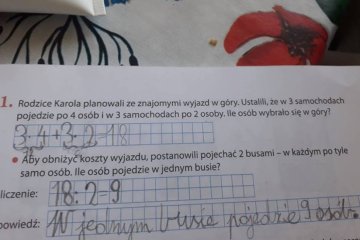 1. Rodzice Karola planowali ze znajomymi wyjazd w góry. Ustalili, że w 3 samochodach
pojedzie po 4 osób i w 3 samochodach po 2 osoby. Ile osób wybrało się w góry?
3·4+3·2=18
• Aby obniżyć koszty wyjazdu, postanowili pojechać 2 busami – w każdym po tyle
samo osób. Ile osób pojedzie w jednym busie?
liczenie: 18:2=9
powiedź: W jednym busie pojedzie 9 osób.